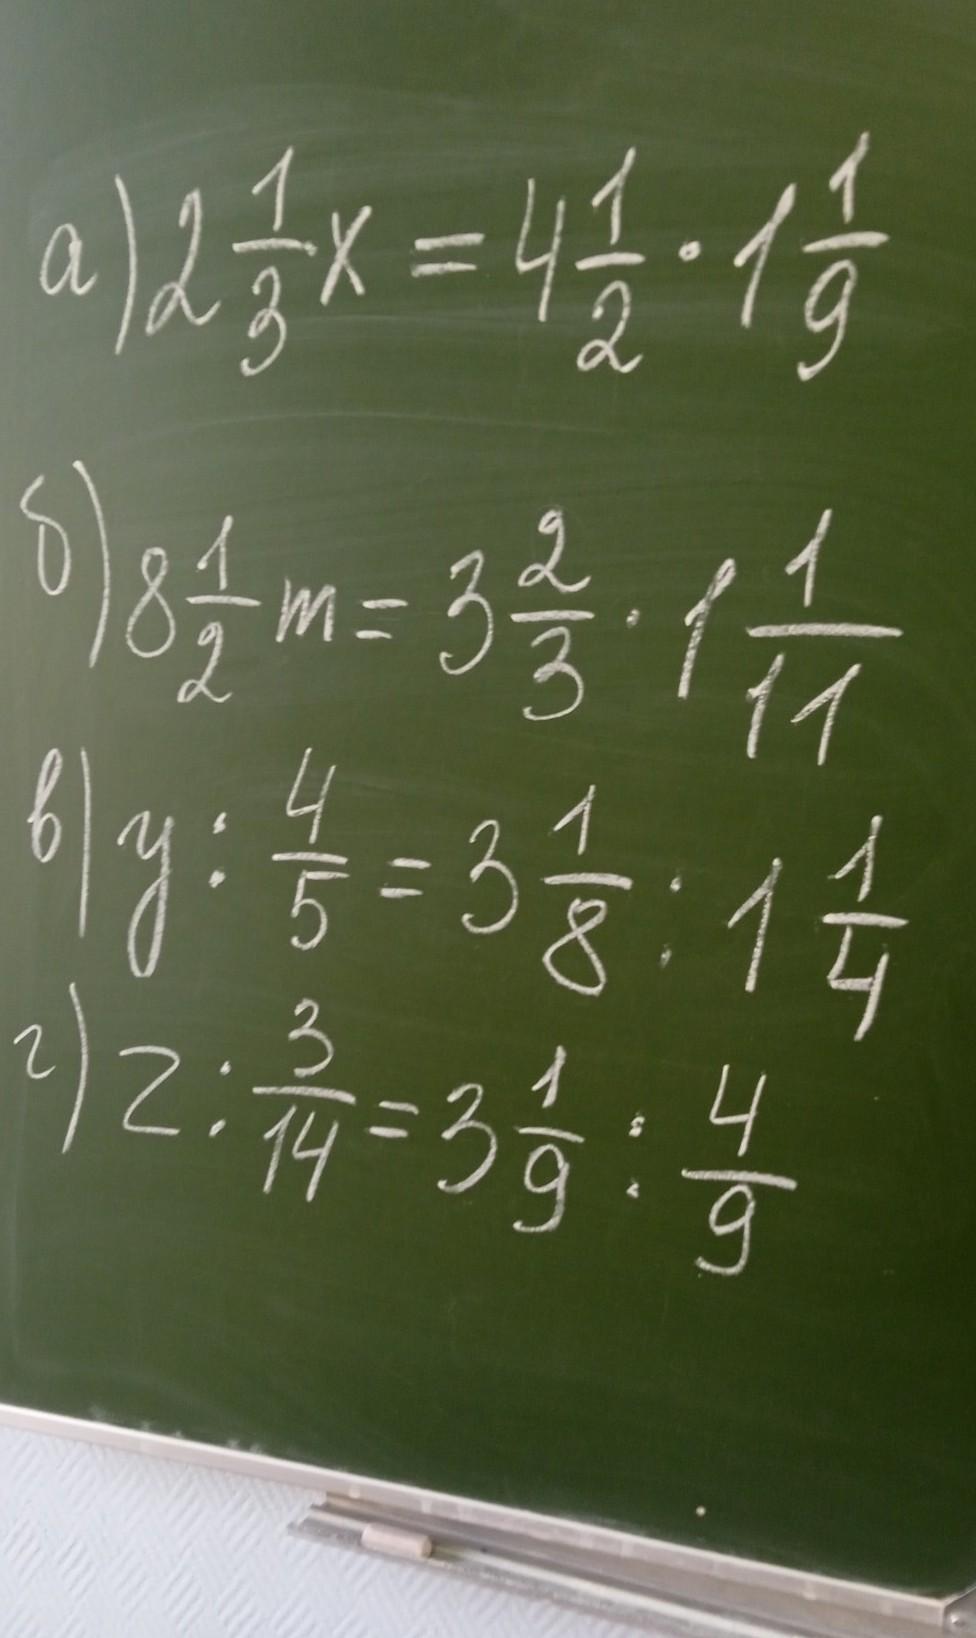 а) 2 1/3 x = 4 1/2 · 1 1/9
б) 8 1/2 m = 3 2/3 · 1 1/11
в) y : 4/5 = 3 1/8 : 1 1/4
г) z : 3/14 = 3 1/9 : 4/9